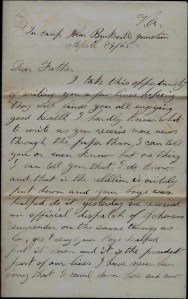 Va.
In camp Near Burksville Junction
April 29/65
Dear Father.
I take this opportunity
of writing you a few lines hoping
they will find you all enjoying
good health I hardly know what
to write as you receive more news
through the paper than I can tell
you or ever know but one thing
I can tell you that I do know
and that is the rebellion is entirely
put down and your boys
helped do it yesterday we received
an official dispatch of Johnson
surrender on the same terms as
Lee, yes! your boys helped
put it down and it is the proudest
part of our lives I have never been
sorry that I came down here and now